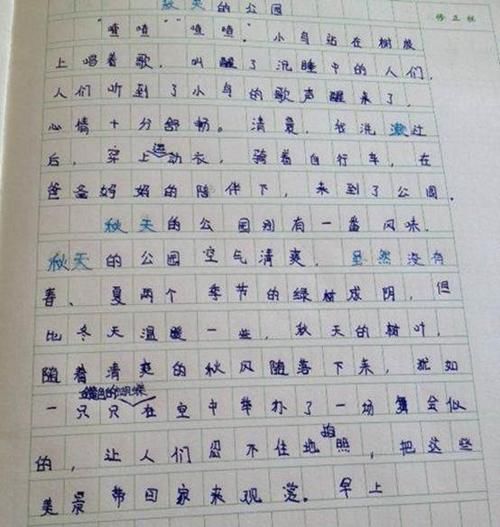 秋天的公园
修正栏
"喳喳""喳喳."小鸟站在树枝
上唱着歌,叫醒了沉睡中的人们,
人们听到了小鸟的歌声醒来了,
心情十分舒畅。清晨,我洗漱过
后,穿上运动衣,骑着自行车,在
爸爸妈妈的陪伴下,来到了公园。
秋天的公园别有一番风味.
秋天的公园空气清爽,虽然没有
春、夏两个季节的绿树成阴,但
比冬天温暖一些,秋天的树叶,
随着清爽的秋风随落下来,犹如
一只只金黄色的蝴蝶在空中举办了一场舞会似
的,让人们忍不住地拍照,把这些
美景带回家来观赏。早上